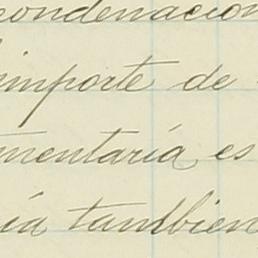 condenacion
importe de
mentaría es
ía tambien